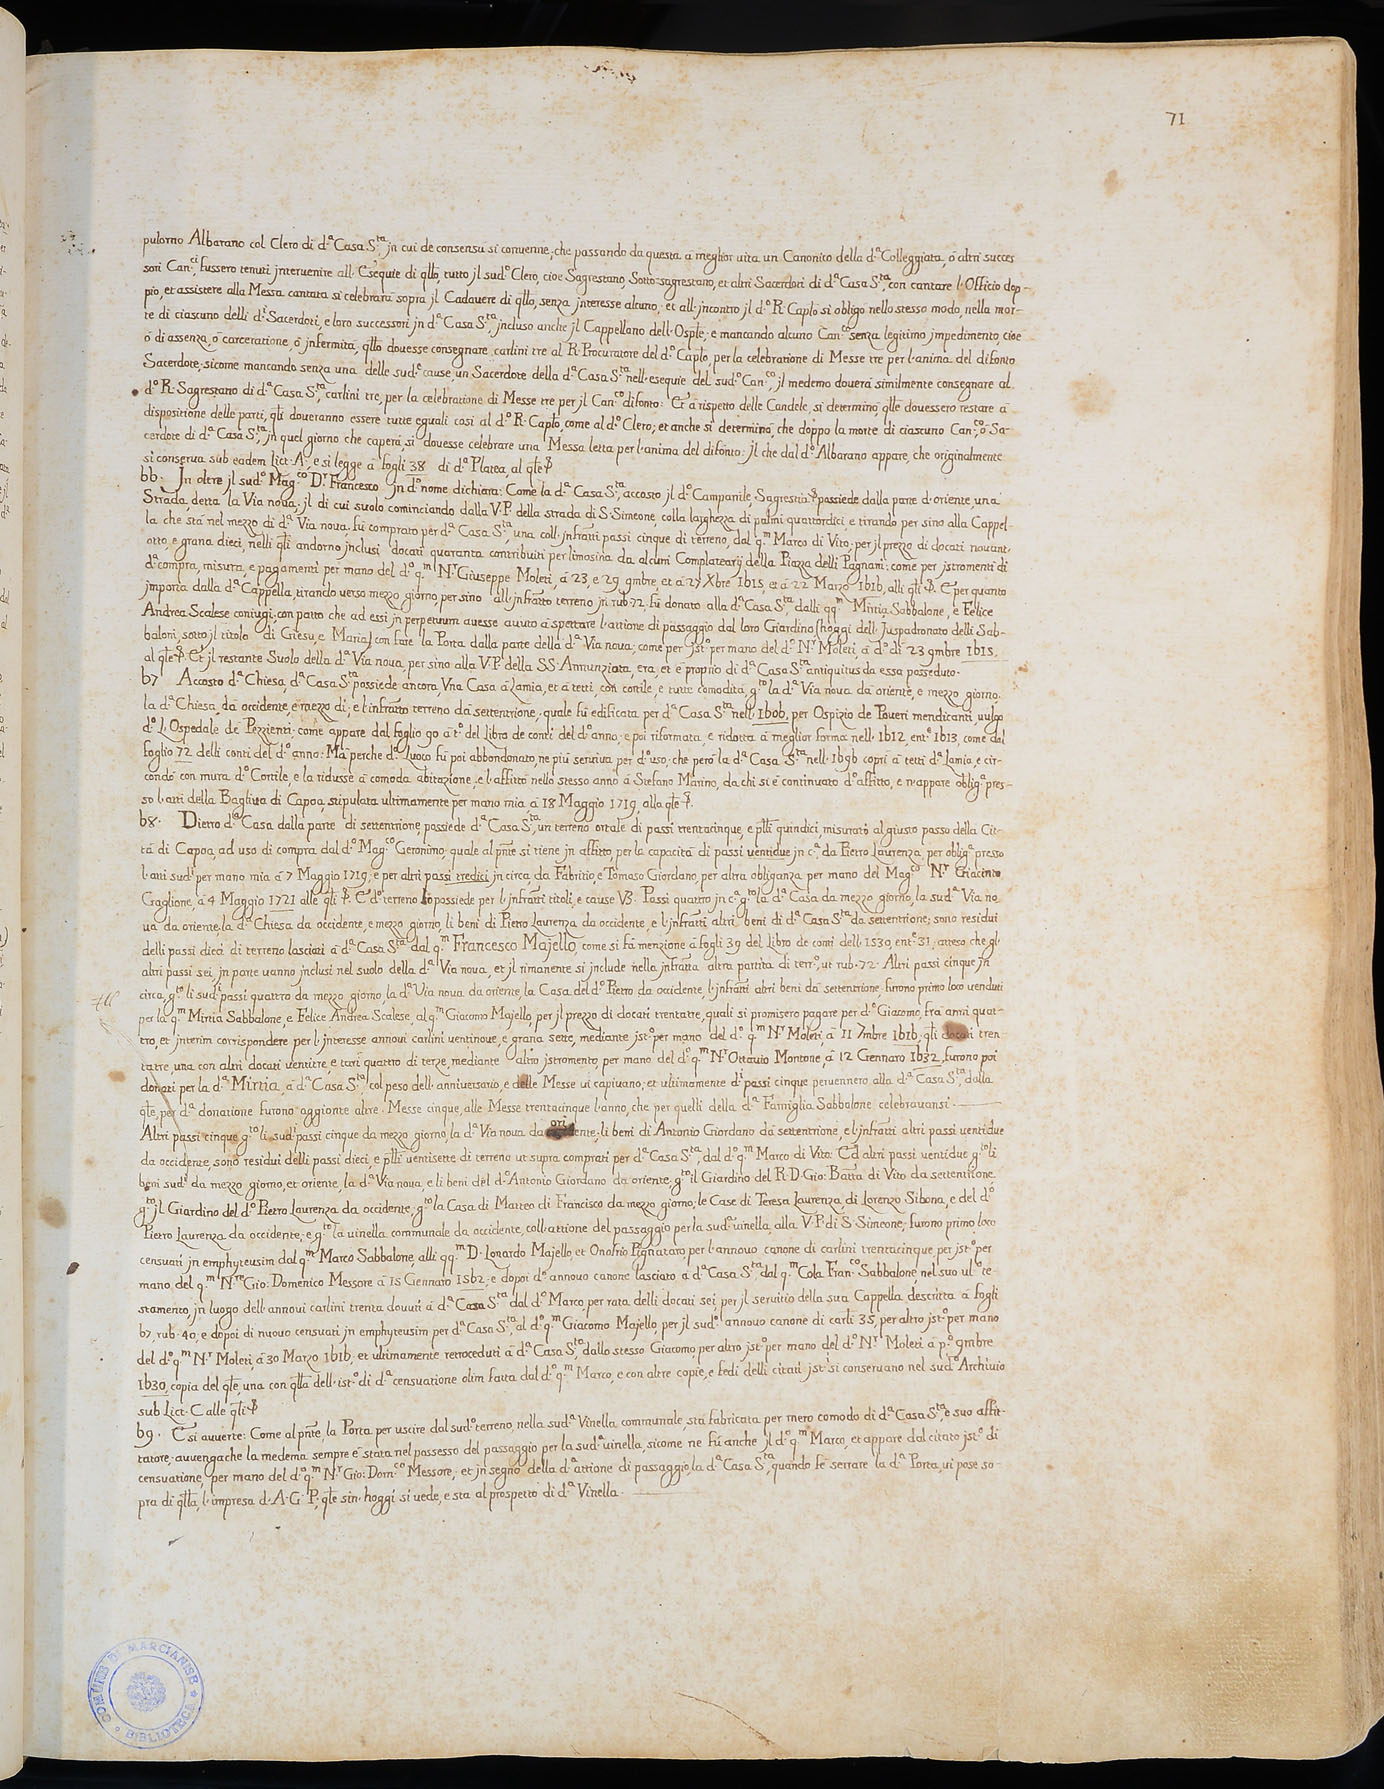 71
pulorno Albarano col Clero di d.ª Casa S.ta, jn cui de consensu si conuenne, che passando da questa à meglior uita un Canonico della d.ª Colleggiata, ò altri succes
sori Can.ci, fussero tenuti jnteruenire all'Esequie di qllo, tutto jl sud.º Clero, cioe Sagrestano, Sotto-sagrestano, et altri Sacerdoti di d.ª Casa S.ta, con cantare l'Officio dop-
pio, et assistere alla Messa cantata si celebrarà sopra jl Cadauere di qllo, senza jnteresse alcuno; et all'jncontro jl d.º R. Caplo si obligò nello stesso modo, nella mor-
te di ciascuno delli d.i Sacerdoti, e loro successori jn d.ª Casa S.ta, jncluso anche jl Cappellano dell'Osple; e mancando alcuno Can.co senza legitimo jmpedimento cioe
ò di assenza, ò carceratione, ò jnfermità, qllo douesse consegnare carlini tre al R. Procuratore del d.º Caplo, per la celebratione di Messe tre per l'anima del difonto
Sacerdote; sicome mancando senza una delle sud.e cause, un Sacerdote della d.ª Casa S.ta nell'esequie del sud.º Can.co, jl medemo douerà similmente consegnare al
d.º R. Sagrestano di d.ª Casa S.ta, carlini tre, per la celebratione di Messe tre per jl Can.co difonto: Et à rispetto delle Candele, si determinò, qlle douessero restare à
dispositione delle parti, qli doueranno essere tutte eguali così al d.º R. Caplo, come al d.º Clero; et anche si determinò, che doppo la morte di ciascuno Can.co, ò Sa-
cerdote di d.ª Casa S.ta, jn quel giorno che caperà, si douesse celebrare una Messa letta per l'anima del difonto: jl che dal d.º Albarano appare, che originalmente
si conserua sub eadem Lict. A, e si legge à fogli 38 di d.ª Platea, al qle &
66. Jn oltre jl sud.º Mag.co D.r Francesco jn d.º nome dichiara: Come la d.ª Casa S.ta, accosto jl d.º Campanile, Sagrestia & possiede dalla parte d'oriente, una
Strada, detta la Via noua; jl di cui suolo cominciando dalla V. P. della strada di S. Simeone, colla larghezza di palmi quattordici, e tirando per sino alla Cappel-
la che stà nel mezzo di d.ª Via noua, fù comprato per d.ª Casa S.ta, una coll'jnfratti passi cinque di terreno, dal q.m Marco di Vito, per jl prezzo di docati nouant'
otto, e grana dieci, nelli qli andorno jnclusi docati quaranta contribuiti per limosina da alcuni Complatearij della Piazza delli Pagnani: come per jstromenti di
d.ª compra, misura, e pagamenti per mano del d.º q.m N.r Giuseppe Moleti, à 23, e 29 9mbre et à 27 Xbre 1615, et à 22 Marzo 1616, alli qli &. E per quanto
jmporta dalla d.ª Cappella, tirando uerso mezzo giorno, per sino all'jnfratto terreno jn rub. 72, fù donato alla d.ª Casa S.ta, dalli qq.m Mirtia Sabbalone, e Felice
Andrea Scalese coniugi, con patto che ad essi jn perpetuum auesse auuto à spettare l'attione di passaggio dal loro Giardino (hoggi dell'Juspadronato delli Sab-
baloni, sotto jl titolo di Giesù, e Maria) con fare la Porta dalla parte della d.ª Via noua; come per jst.º per mano del d.º N.r Moleti, à d.º dì 23 9mbre 1615,
al qle &. Et jl restante Suolo della d.ª Via noua, per sino alla V. P. della SS. Annunziata, era, et è proprio di d.ª Casa S.ta antiquitus da essa posseduto.
67 Accosto d.ª Chiesa, d.ª Casa S.ta possiede ancora Vna Casa à Lamia, et à tetti, con cortile, e tutte comodità, g.to la d.ª Via noua da oriente, e mezzo giorno,
la d.ª Chiesa, da occidente, e mezzo dì; e l'infratto terreno da settentrione; quale fù edificata per d.ª Casa S.ta nell'1606, per Ospizio de Poueri mendicanti, uulgo
d.º L'Ospedale de Pezzienti: come appare dal foglio 90 à t.º del Libro de conti del d.º anno; e poi riformata, e ridotta à meglior forma nell'1612, ent.e 1613, come dal
foglio 72 delli conti del d.º anno: Mà perche d.º Luoco fù poi abbondonato, ne più seruiua per d.º uso; che però la d.ª Casa S.ta nell'1696 coprì à tetti d.ª Lamia, e cir-
condè con mura d.º Cortile, e la ridusse à comoda abitazione, e l'affittò nello stesso anno à Stefano Marino, da chi si è continuato d.º affitto, e n'appare oblig.ª pres-
so l'atti della Bagliua di Capoa, stipulata ultimamente per mano mia, à 18 Maggio 1719, alla qle &.
68. Dietro d.ª Casa dalla parte di settentrione, possiede d.ª Casa S.ta, un terreno ortale di passi trentacinque, e plli quindici, misurato al giusto passo della Cit-
tà di Capoa, ad uso di compra dal d.º Mag.co Geronimo; quale al pnte si tiene jn affitto, per la capacità di passi uentidue jn c.ª da Pietro Laurenza, per oblig.ª presso
l'atti sud.i per mano mia à 7 Maggio 1719; e per altri passi tredici jn circa, da Fabritio, e Tomaso Giordano, per altra obliganza per mano del Mag.co N.r Giacinto
Gaglione, à 4 Maggio 1721 alle qli &. E d.º terreno si possiede per l'jnfratti titoli, e cause V3. Passi quattro jn c.ª g.to la d.ª Casa da mezzo giorno, la sud.ª Via no
ua da oriente, la d.ª Chiesa da occidente, e mezzo giorno, li beni di Pietro Laurenza da occidente, e l'jnfratti altri beni di d.ª Casa S.ta da settentrione; sono residui
delli passi dieci di terreno lasciati à d.ª Casa S.ta dal q.m Francesco Majello, come si fà menzione à fogli 39 del Libro de conti dell'1530, ent.e 31, atteso che gl'
altri passi sei, jn parte uanno jnclusi nel suolo della d.ª Via noua, et jl rimanente si jnclude nella jnfratta altra partita di terr.º, ut rub. 72. Altri passi cinque jn
circa, g.to li sud.i passi quattro da mezzo giorno, la d.ª Via noua da oriente, la Casa del d.º Pietro da occidente, l'jnfratti altri beni da settentrione, furono primo loco uenduti
per la q.m Mirtia Sabbalone, e Felice Andrea Scalese, al q.m Giacomo Majello, per jl prezzo di docati trentatre, quali si promisero pagare per d.º Giacomo, frà anni quat-
tro, et jnterim corrispondere per l'jnteresse annoui carlini uentinoue, e grana sette, mediante jst.º per mano del d.º q.m N.r Moleti, à 11 7mbre 1616; qli docati tren
tatre, una con altri docati uentitre, e tarì quattro di terze, mediante altro jstromento, per mano del d.º q.m N.r Ottauio Montone, à 12 Gennaro 1632, furono poi
donati per la d.ª Mirtia, à d.ª Casa S.ta, col peso dell'anniuersario, e delle Messe ui capiuano; et ultimamente d.i passi cinque peruennero alla d.ª Casa S.ta, dalla
qle, per d.ª donatione furono aggionte altre Messe cinque, alle Messe trentacinque l'anno, che per quelli della d.ª Famiglia Sabbalone celebrauansi.
Altri passi cinque g.to li sud.i passi cinque da mezzo giorno, la d.ª Via noua da oriente; li beni di Antonio Giordano da settentrione, e l'jnfratti altri passi uentidue
da occidente, sono residui delli passi dieci, e plli uentisette di terreno ut supra comprati per d.ª Casa S.ta, dal d.º q.m Marco di Vito: Ed altri passi uentidue g.to li
beni sud.i da mezzo giorno, et oriente, la d.ª Via noua, e li beni del d.º Antonio Giordano da oriente, g.to il Giardino del R. D. Gio: Batta di Vito da settentrione
g.to jl Giardino del d.º Pietro Laurenza da occidente, g.to la Casa di Matteo di Francisco da mezzo giorno, le Case di Teresa Laurenza, di Lorenzo Sibona, e del d.º
Pietro Laurenza da occidente; e g.to la uinella communale da occidente, coll'attione del passaggio per la sud.ª uinella, alla V. P. di S. Simeone; furono primo loco
censuati jn emphyteusim dal q.m Marco Sabbalone, alli qq.m D. Lonardo Majello, et Onofrio Pignataro, per l'annouo canone di carlini trentacinque, per jst.º per
mano del q.m N.re Gio: Domenico Messore à 15 Gennaro 1562; e dopoi d.º annouo canone lasciato à d.ª Casa S.ta dal q.m Cola Fran.co Sabbalone, nel suo ul.º te-
stamento, jn luogo dell'annoui carlini trenta douuti à d.ª Casa S.ta dal d.º Marco, per rata delli docati sei, per jl seruitio della sua Cappella, descritta à fogli
67, rub. 40; e dopoi di nuouo censuati jn emphyteusim per d.ª Casa S.ta, al d.º q.m Giacomo Majello, per jl sud.º annouo canone di carli 35, per altro jst.º per mano
del d.º q.m N.r Moleti, à 30 Marzo 1616, et ultimamente retroceduti à d.ª Casa S.ta, dallo stesso Giacomo, per altro jst.º per mano del d.º N.r Moleti à p.º 9mbre
1630, copia del qle, una con qlla dell'ist.º di d.ª censuatione olim fatta dal d.º q.m Marco, e con altre copie, e fedi delli citati jst.i si conseruano nel sud.º Archiuio
sub Lict. C alle qli &
69. E si auuerte: Come al pnte, la Porta per uscire dal sud.º terreno, nella sud.ª Vinella communale, stà fabricata per mero comodo di d.ª Casa S.ta, e suo affit-
tatore; auuengache la medema sempre è stata nel possesso del passaggio per la sud.ª uinella, sicome ne fù anche jl d.º q.m Marco, et appare dal citato jst.º di
censuatione, per mano del d.º q.m N.r Gio: Dom.co Messore; et jn segno della d.ª attione di passaggio, la d.ª Casa S.ta, quando fè serrare la d.ª Porta, ui pose so-
pra di qlla, l'impresa d. A. G. P; qle sin'hoggi si uede, e sta al prospetto di d.ª Vinella.
COMUNE DI MARCIANISE * BIBLIOTECA *